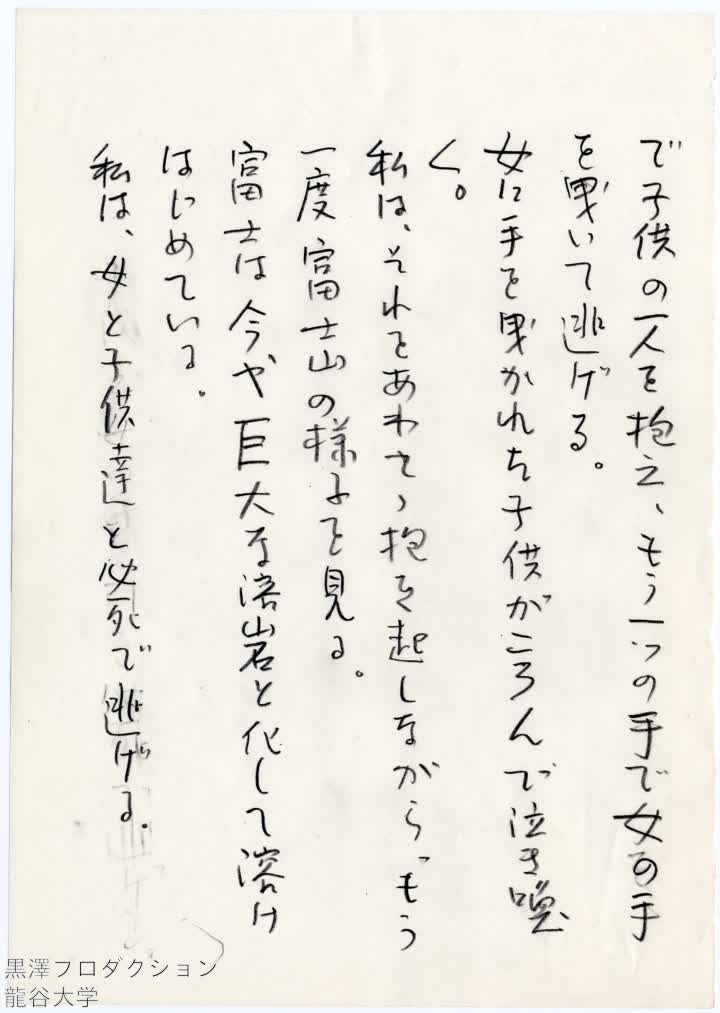 で子供の一人を抱え、もう一つの手で女の手
を曳いて逃げる。
女に手を曳かれた子供がころんで泣き喚
く。
私は、それをあわてゝ抱き起しながら、もう
一度富士山の様子を見る。
富士は今や巨大な溶岩と化して溶け
はじめている。
私は、女と子供達と必死で逃げる。
黒澤プロダクション
龍谷大学